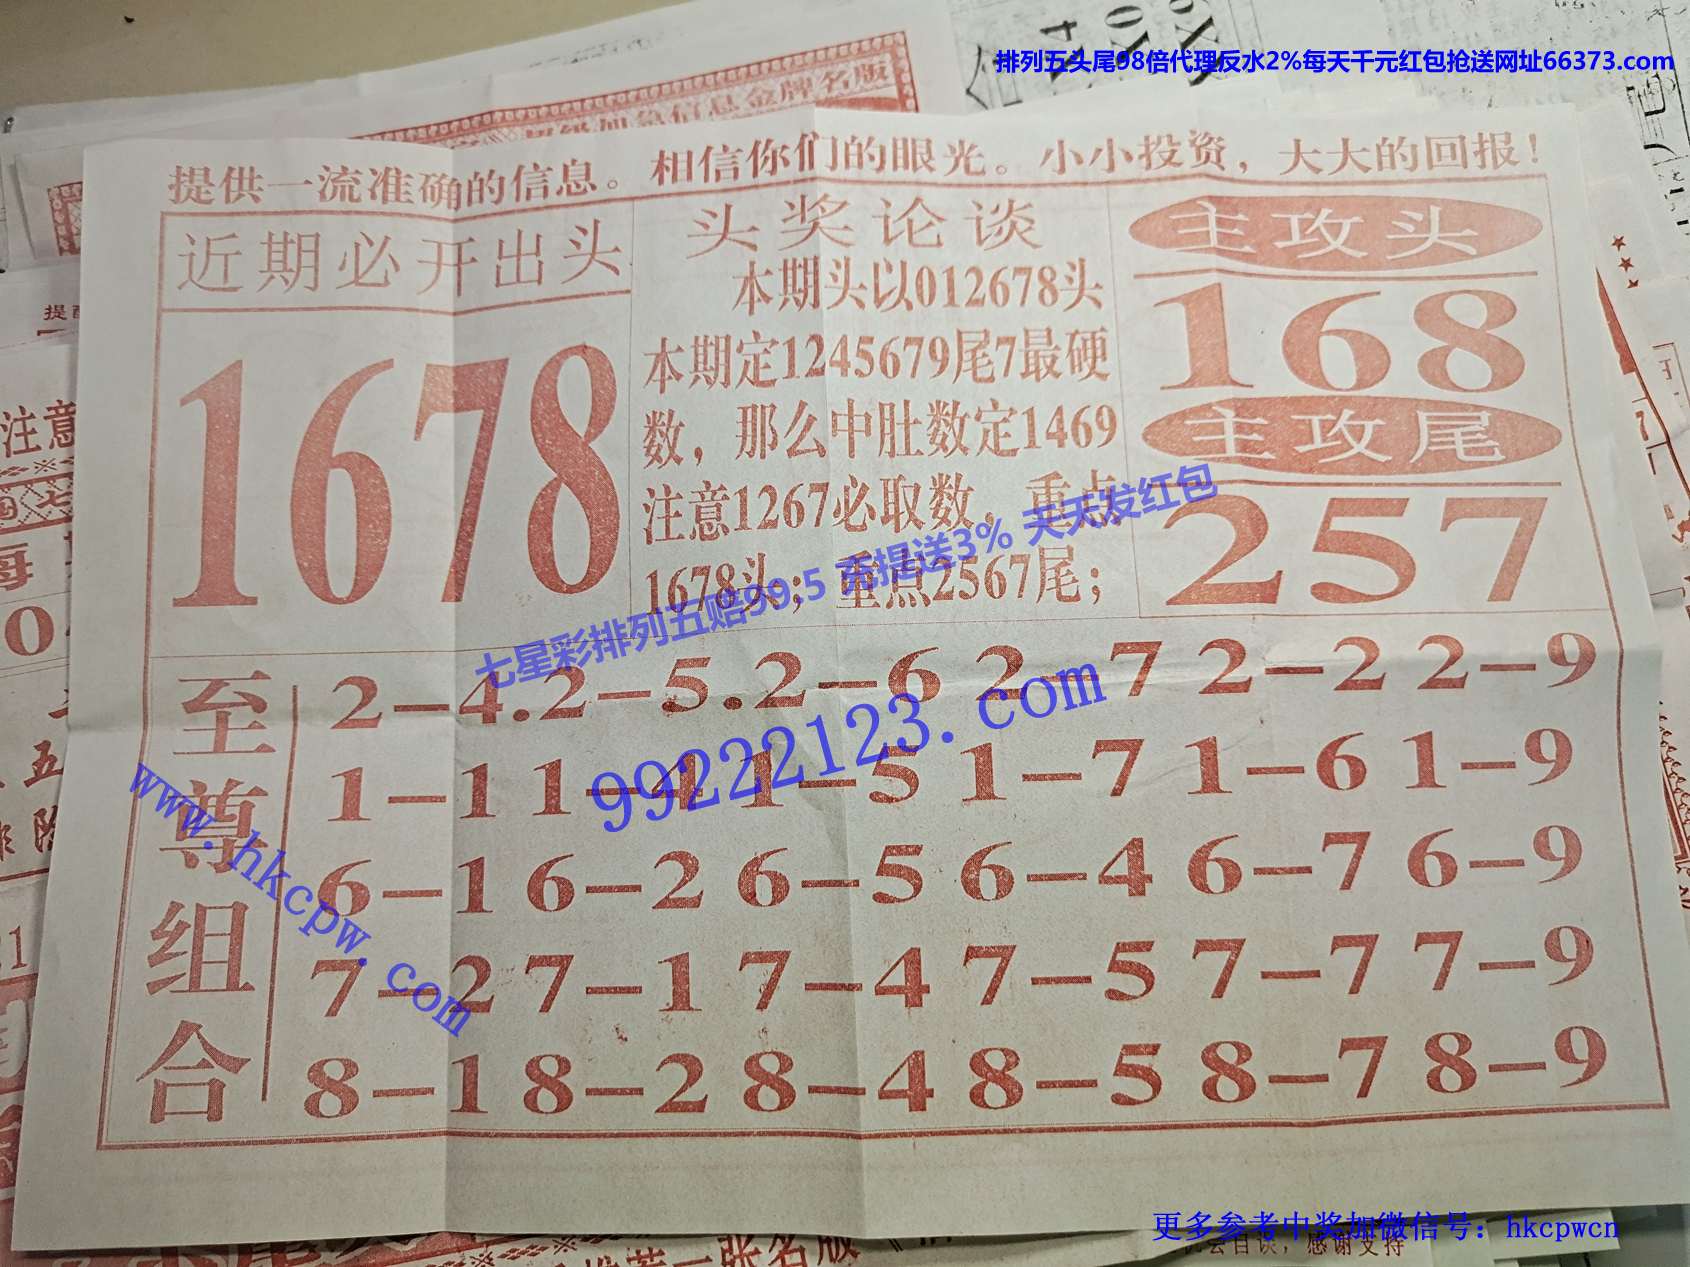 排列五头尾98倍代理反水2%每天千元红包抢送网址66373.com
超级加急信息金牌名版
提供一流准确的信息。相信你们的眼光。小小投资，大大的回报！
近期必开出头
1678
头奖论谈
本期头以012678头
本期定1245679尾7最硬
数，那么中肚数定1469
注意1267必取数，重点
1678头；重点2567尾；
主攻头
168
主攻尾
257
七星彩排列五赔99.5 充提送3% 天天发红包
99222123.com
www.hkcpw.com
至尊组合
2-4.2-5.2-6 2-7 2-2 2-9
1-1 1-4 1-5 1-7 1-6 1-9
6-1 6-2 6-5 6-4 6-7 6-9
7-2 7-1 7-4 7-5 7-7 7-9
8-1 8-2 8-4 8-5 8-7 8-9
注意
每
0
五
更多参考中奖加微信号：hkcpwcn
感谢支持